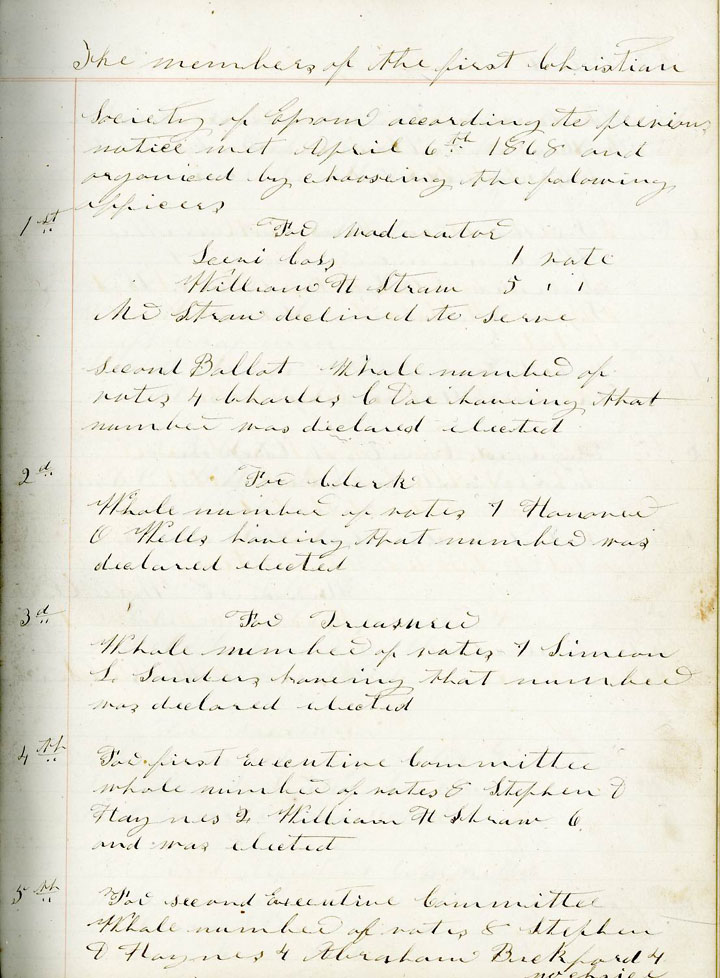 The members of the first Christian
Society of Epsom according to previous
notice met April 6th 1868 and
organiced by chooseing the folowing
officers
1st For Moderator
Levi Cass 1 vote
William H Straw 5 " "
Mr Straw declined to serve
second Ballot Whole number of
votes 4 Charles C Doe haveing that
number was declared elected
2d For Clerk
Whole number of votes 7
O Wells haveing that number was
declared elected
3d For Treasurer
Whole number of votes 7 Simeon
L. Sanders haveing that number
was declared elected
4th For first Executive Committee
whole number of votes 8 Stephen D
Haynes 2 William H Straw 6
and was elected
5th For second Executive Committee
Whole number of votes 8 Stephen
D Haynes 4 Abraham Buckford 4
no choice